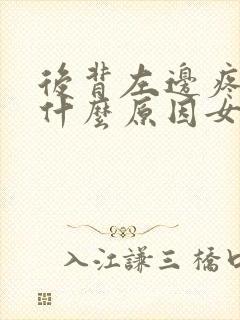 後背左邊疼
什麼原因女
入江謙三 橋口